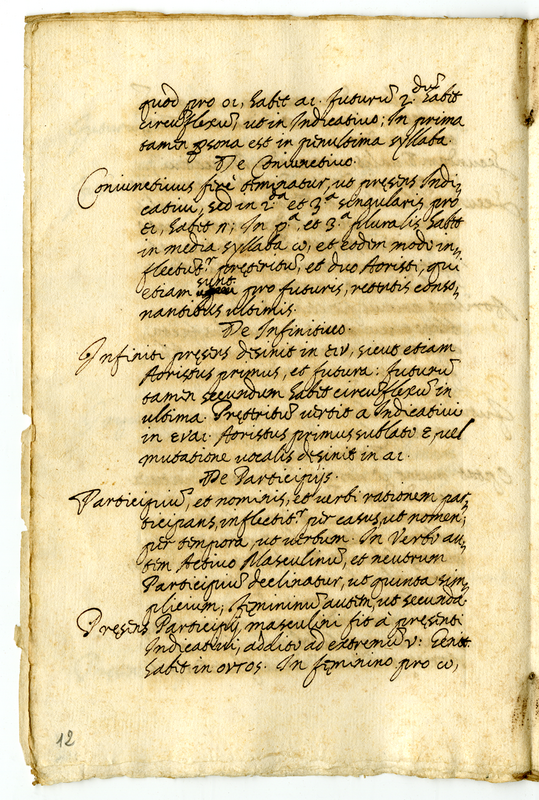 quod pro οι, habet αι. Futurũ 2.dũ habet
circũflexũ, ut in Indicativo; In prima
tamen psona est in penultima syllaba.
De Coniunctivo.
Coniunctivus ferè terminatur, ut pręsens Indi,
cativi, sed in 2.da et 3.a singularis pro
ει, habet η; In p.a et 3.a pluralis habet
in media syllaba ω, et eodem modo in,
flectit.r pręteritũ, et duo Aoristi, qui
etiam sunt pro futuris, retentis conso,
nantibus ultimis.
De Infinitivo.
Infiniti pręsens desinit in ειν, sicut etiam
Aoristus primus, et futura: futurũ
tamen secundum habet circũflexũ in
ultima. Pręteritũ vertit a Indicativi
in εναι. Aoristus primus sublato ε vel
mutatione vocalis desinit in αι.
De Participijs.
Participiũ, et nominis, et verbi rationem par,
ticipans, inflectit.r per casus, ut nomen;
per tempora, ut verbum. In Verbo au,
tem Activo Masculinũ, et neutrum
Participiũ declinatur, ut quinta sim,
plicium; femininũ autem, ut secunda.
Pręsens Participij masculini fit à presenti
Indicativi, addito ad extremũ ν: Genit.
habet in οντος. In fęminino pro ω,
12